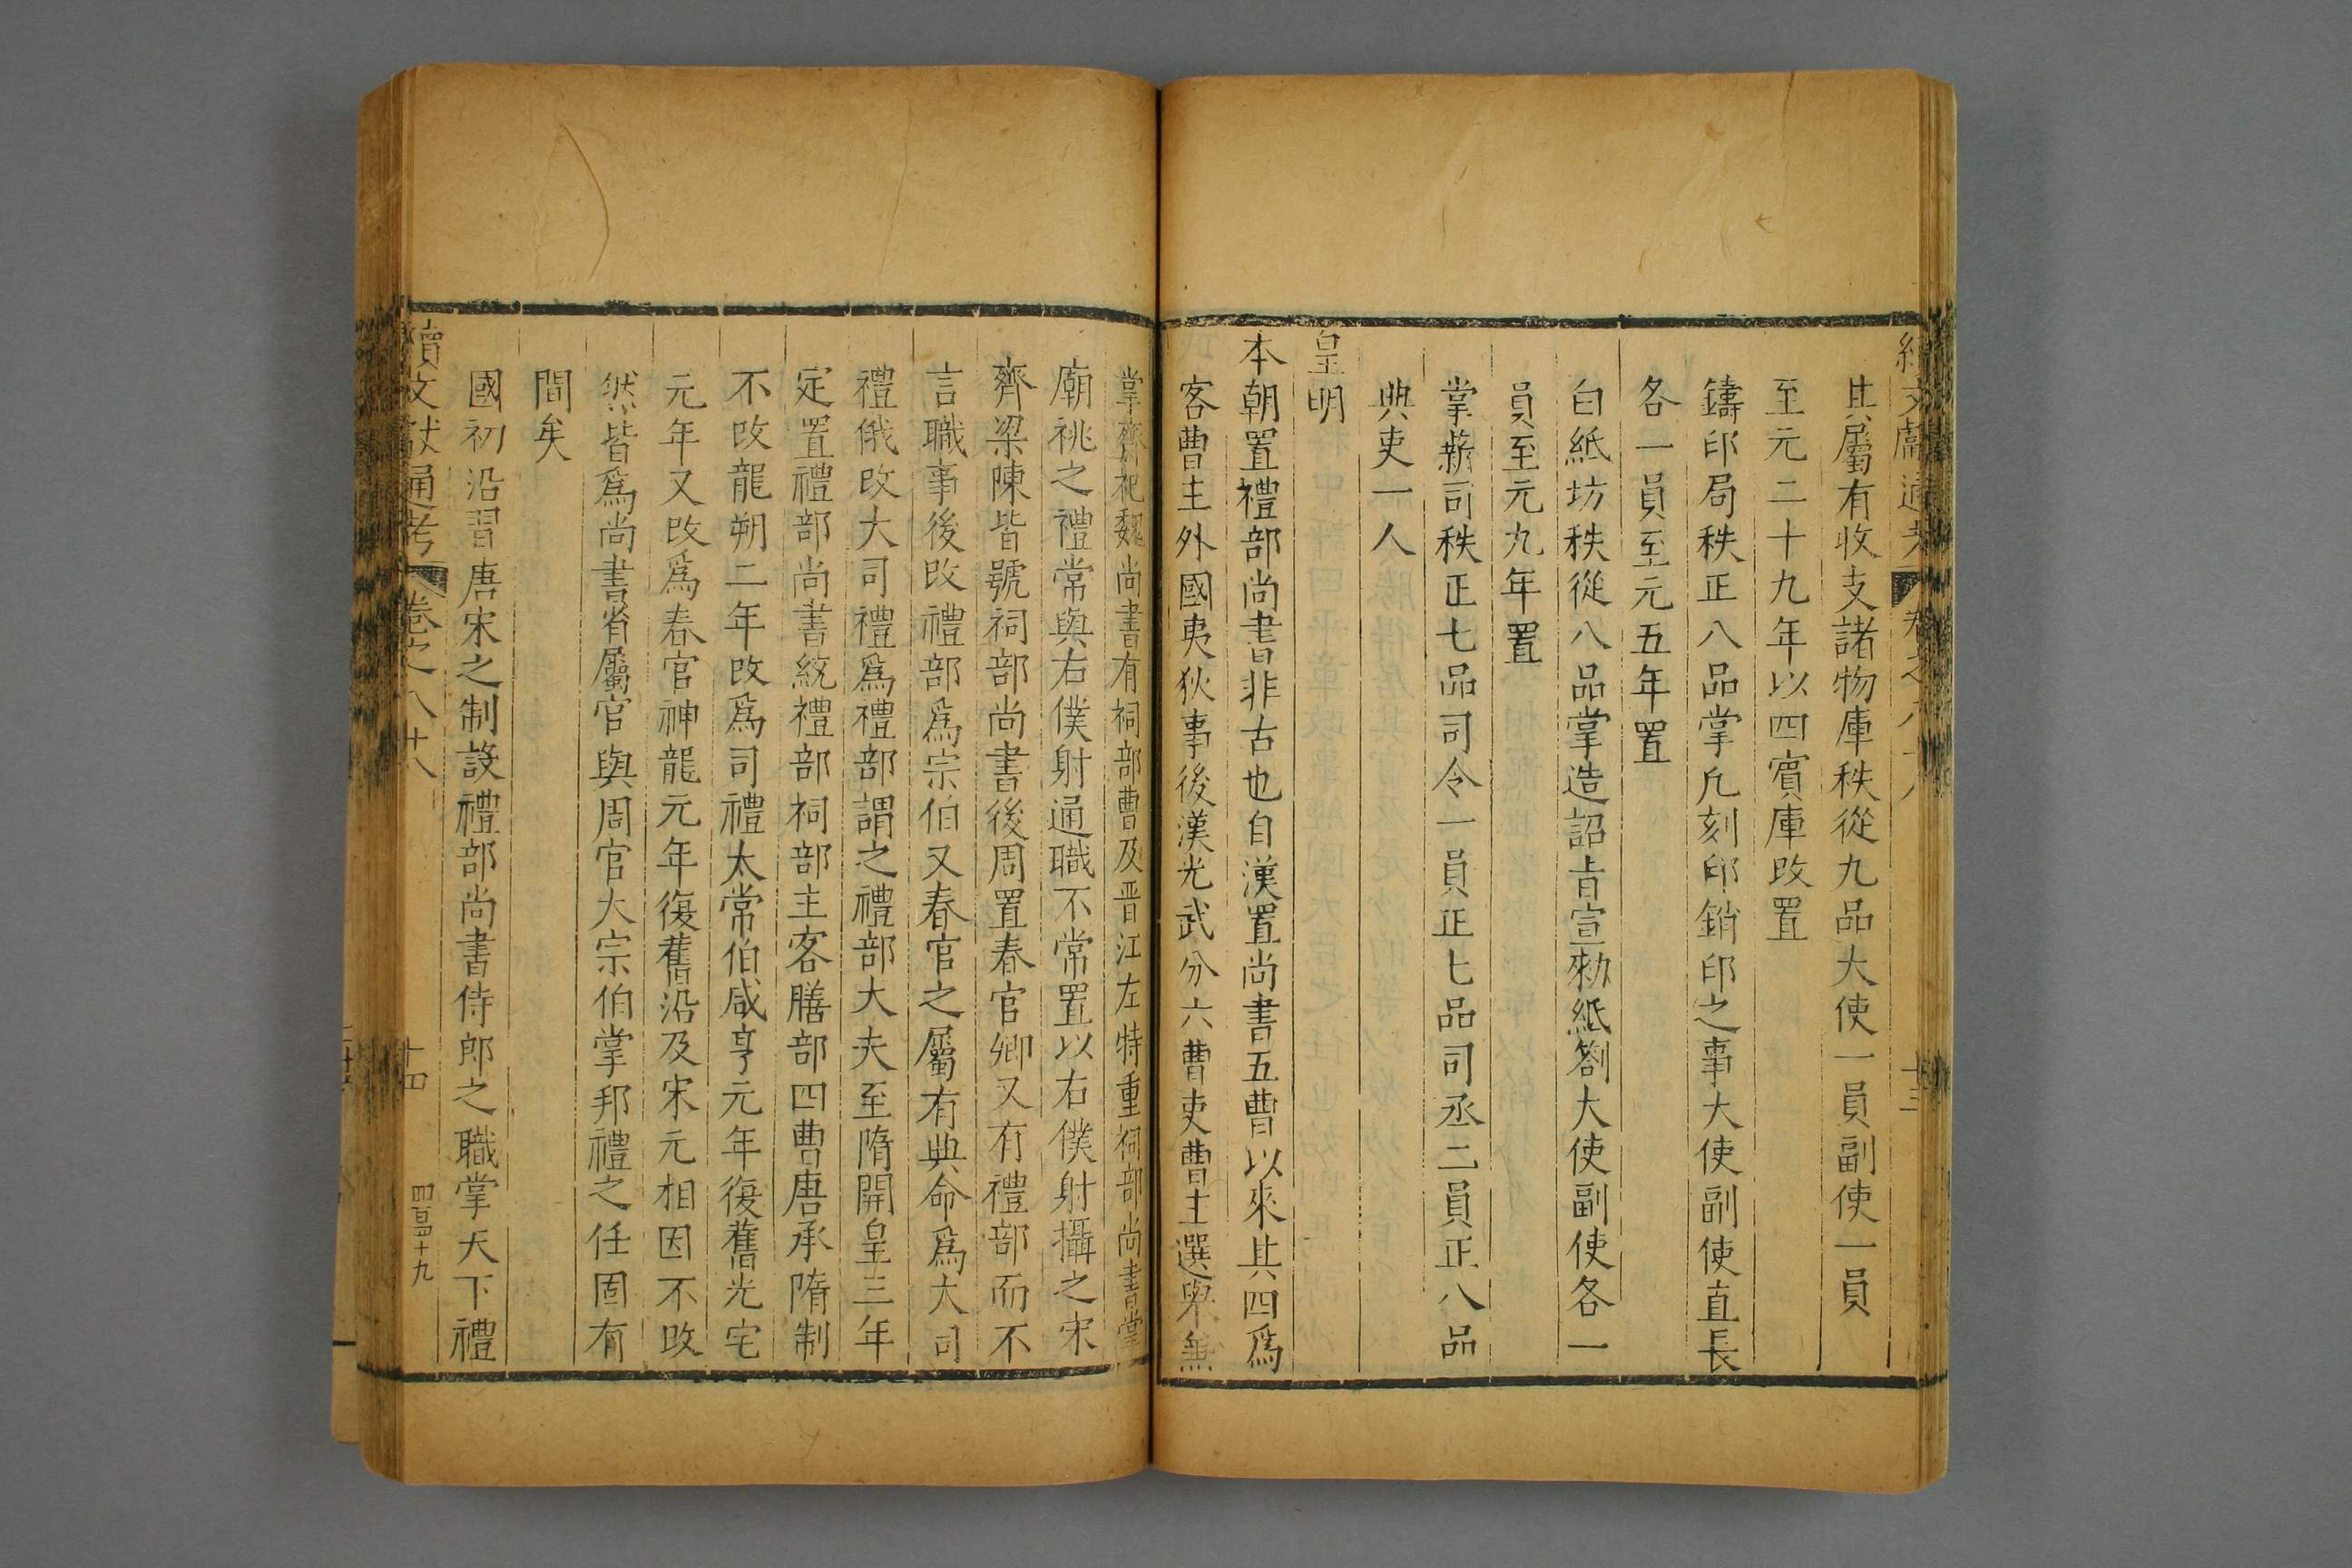 續文獻通考
卷之八十八
十三
其屬有收支諸物庫秩從九品大使一員副使一員
至元二十九年以四賓庫改置
鑄印局秩正八品掌凡刻印銷印之事大使副使直長
各一員至元五年置
白紙坊秩從八品掌造詔旨宣勑紙劄大使副使各一
員至元九年置
掌薪司秩正七品司令一員正七品司丞二員正八品
典吏一人
皇明
本朝置禮部尚書非古也自漢置尚書五曹以來其四爲
客曹主外國夷狄事後漢光武分六曹吏曹主選舉無
掌齋祀魏尚書有祠部曹及晋江左特重祠部尚書掌
廟祧之禮常與右僕射通職不常置以右僕射攝之宋
齊梁陳皆號祠部尚書後周置春官卿又有禮部而不
言職事後改禮部爲宗伯又春官之屬有典命爲大司
禮俄改大司禮爲禮部謂之禮部大夫至隋開皇三年
定置禮部尚書統禮部祠部主客膳部四曹唐承隋制
不改龍朔二年改爲司禮太常伯咸亨元年復舊光宅
元年又改爲春官神龍元年復舊沿及宋元相因不改
然皆爲尚書省屬官與周官大宗伯掌邦禮之任固有
間矣
國初沿習唐宋之制設禮部尚書侍郎之職掌天下禮
續文獻通考
卷之八十八
十四
四百四十九